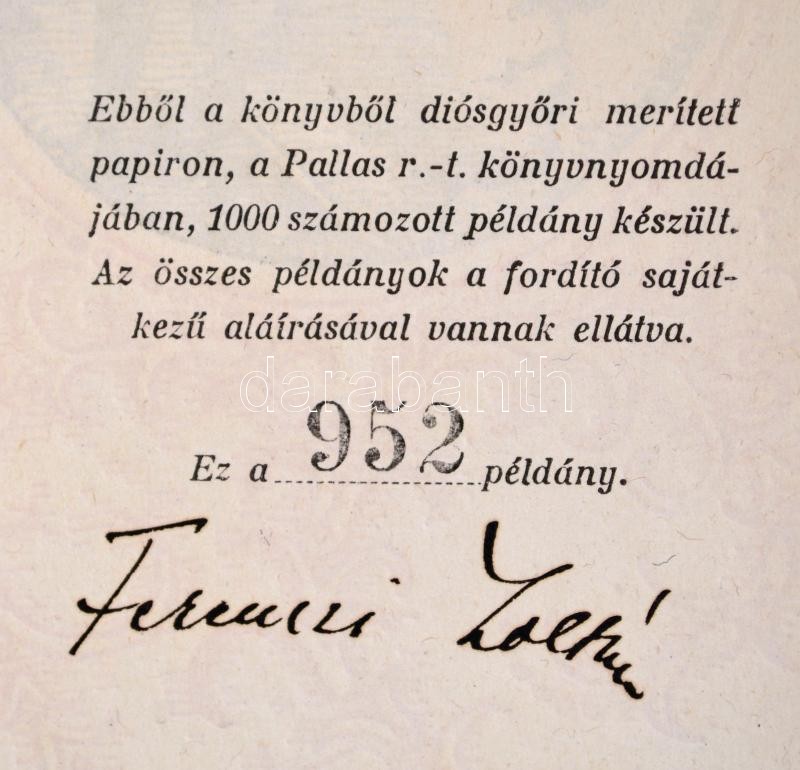 Ebből a könyvből diósgyőri merített
papiron, a Pallas r.-t. könyvnyomdá-
jában, 1000 számozott példány készült.
Az összes példányok a fordító saját-
kezű aláírásával vannak ellátva.
darabanth
Ez a 952 példány.
Ferenczi Zoltán